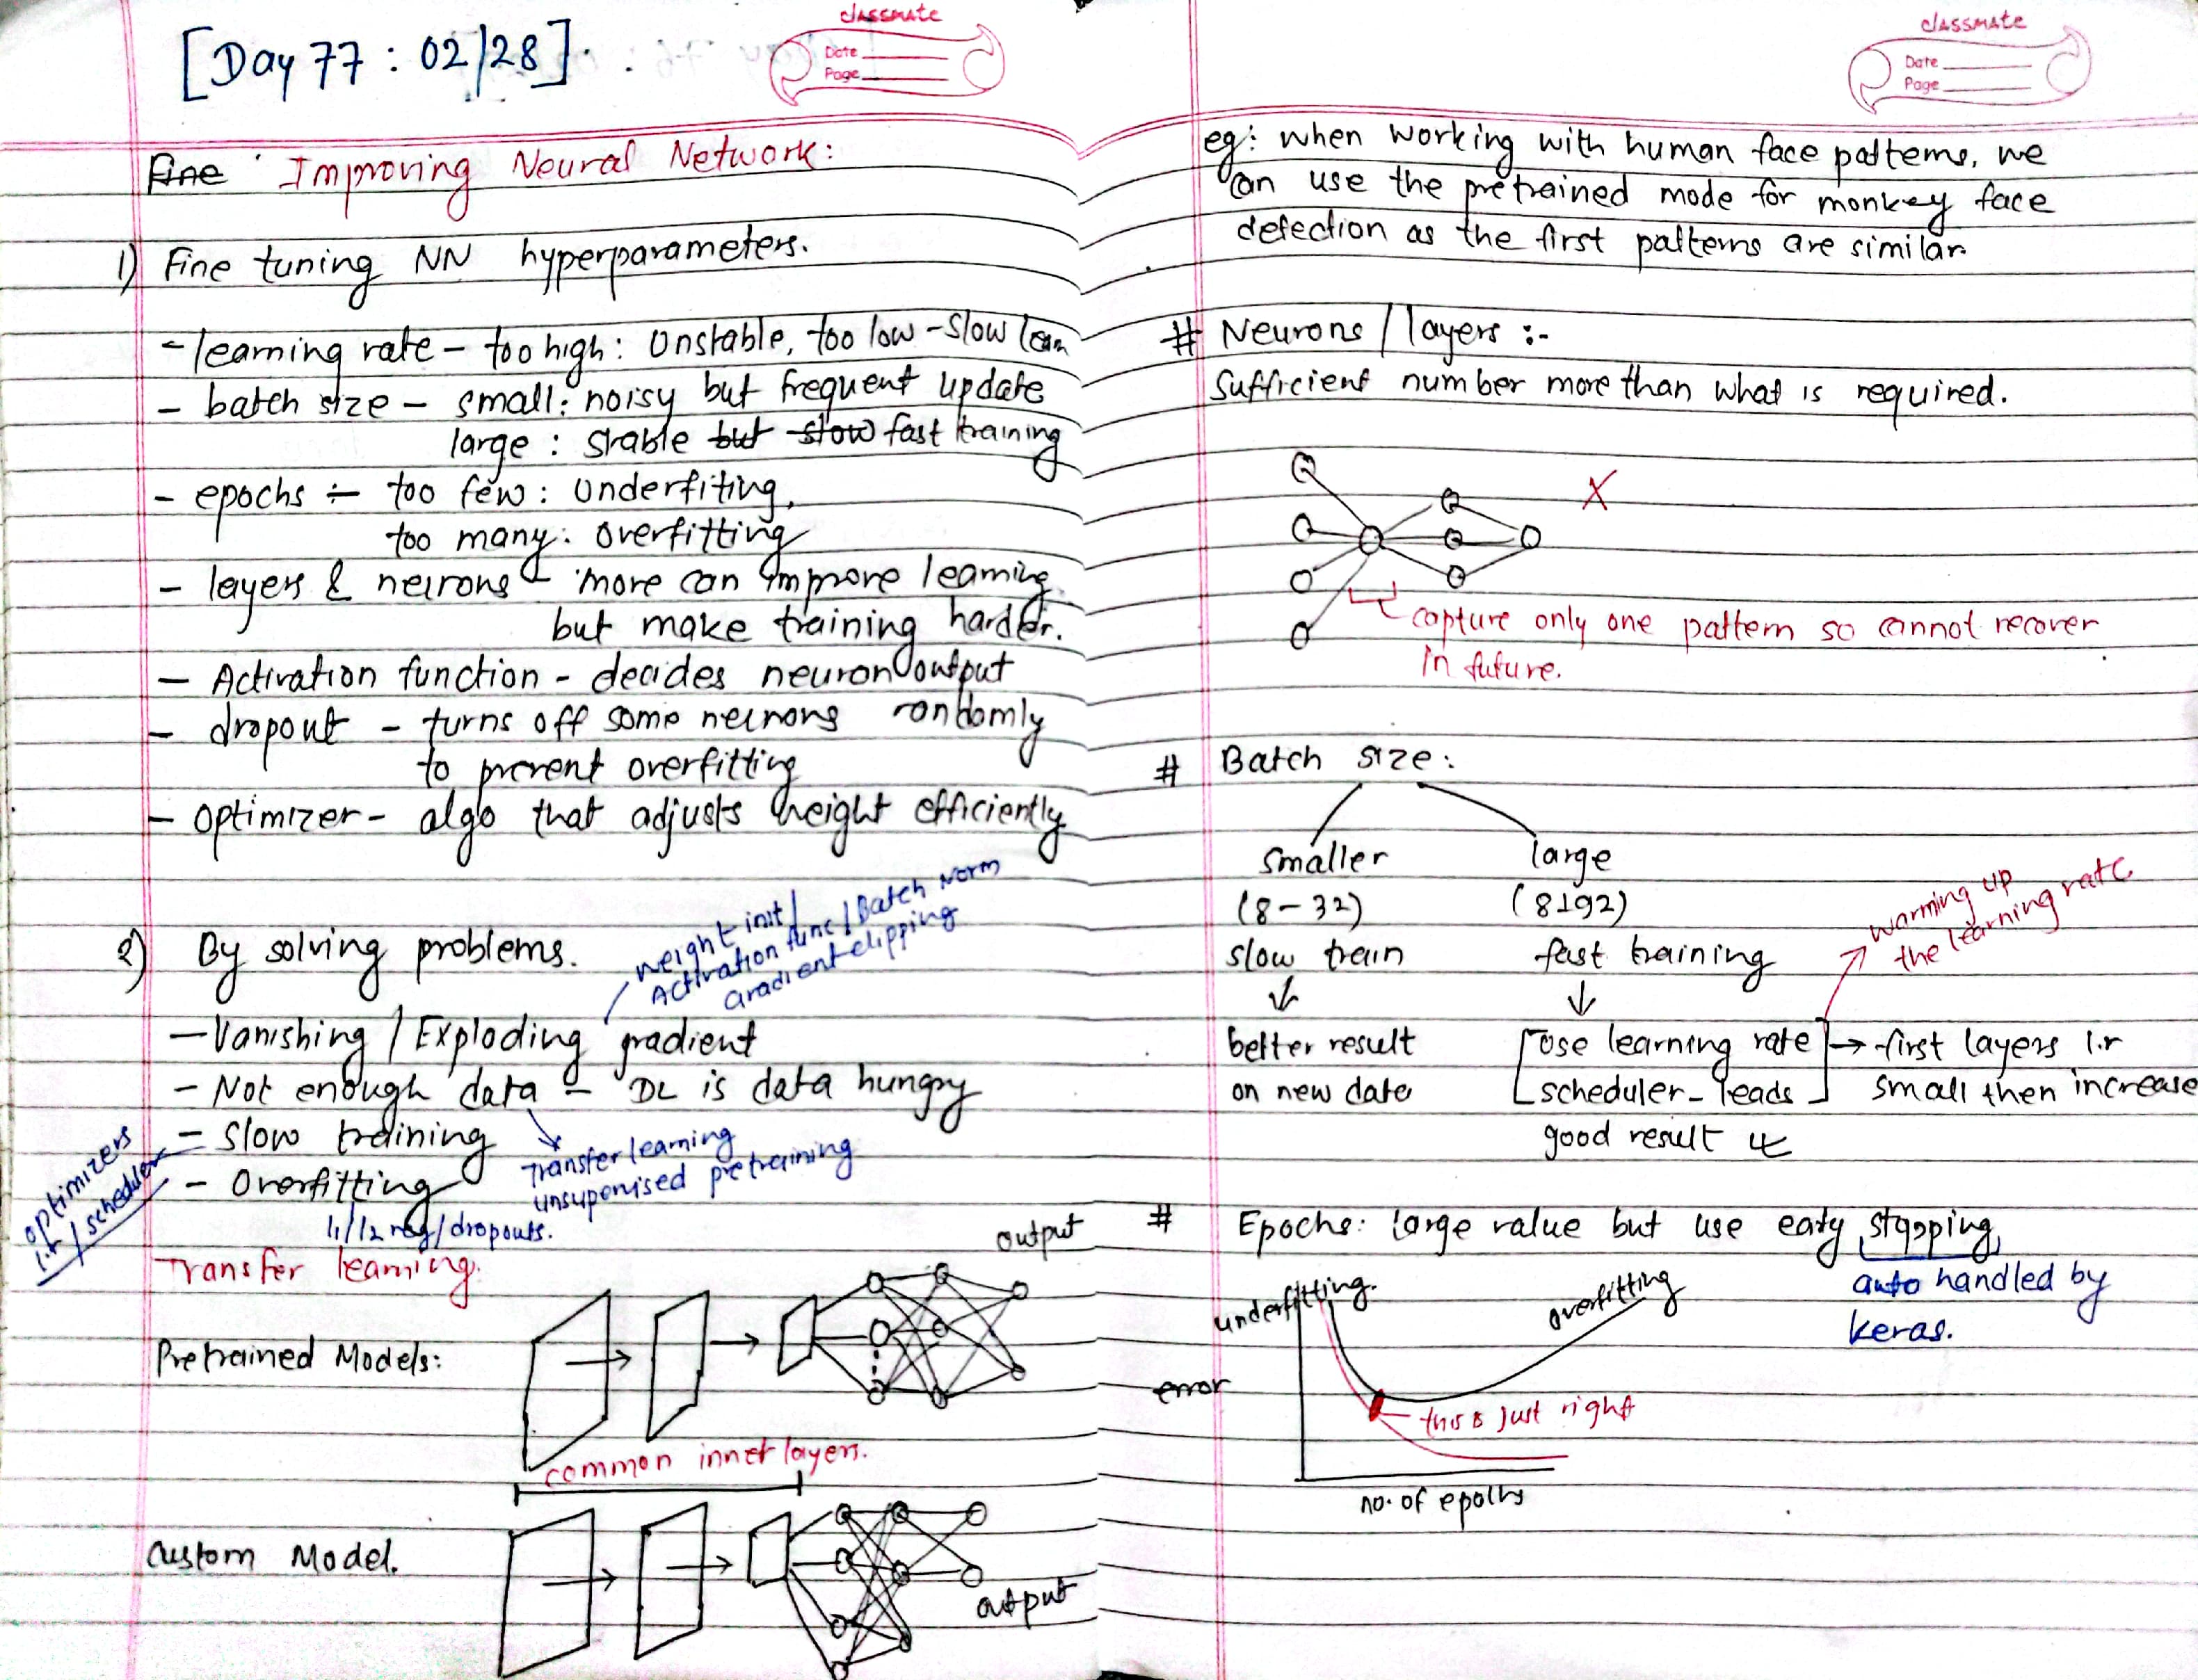 [Day 77 : 02/28]
classmate
Date
Page
Fine Improving Neural Network:
1) Fine tuning NN hyperparameters.
- learning rate - too high: Unstable, too low - slow lean
- batch size - small: noisy but frequent update
large : stable but slow fast training
- epochs - too few: Underfiting,
too many: overfitting
- layers & neurons - more can improve learning
but make training harder.
- Activation function - decides neuron output
- dropout - turns off some neurons randomly
to prevent overfitting
- optimizer - algo that adjusts weight efficiently
2) By solving problems.
weight init/
Activation func/Batch Norm
Gradient clipping
- Vanishing / Exploding gradient
- Not enough data - DL is data hungry
- Slow training
Transfer learning
unsupervised pretraining
optimizers
l.r/scheduler
- Overfitting
l1/l2 reg/dropouts.
Transfer learning.
output
Pretrained Models:
common inner layers.
Custom Model.
output
classmate
Date
Page
eg: when working with human face patterns, we
can use the pretrained mode for monkey face
detection as the first patterns are similar.
# Neurons / layers :-
Sufficient number more than what is required.
X
capture only one pattern so cannot recover
in future.
# Batch size :
smaller large
(8-32) (8192)
slow train fast training
warming up
the learning rate
better result [use learning rate] → first layers l.r
on new data [scheduler - leads] small then increase
good result
# Epochs: large value but use early stopping,
auto handled by
keras.
underfitting. overfitting
error
this is just right
no. of epochs